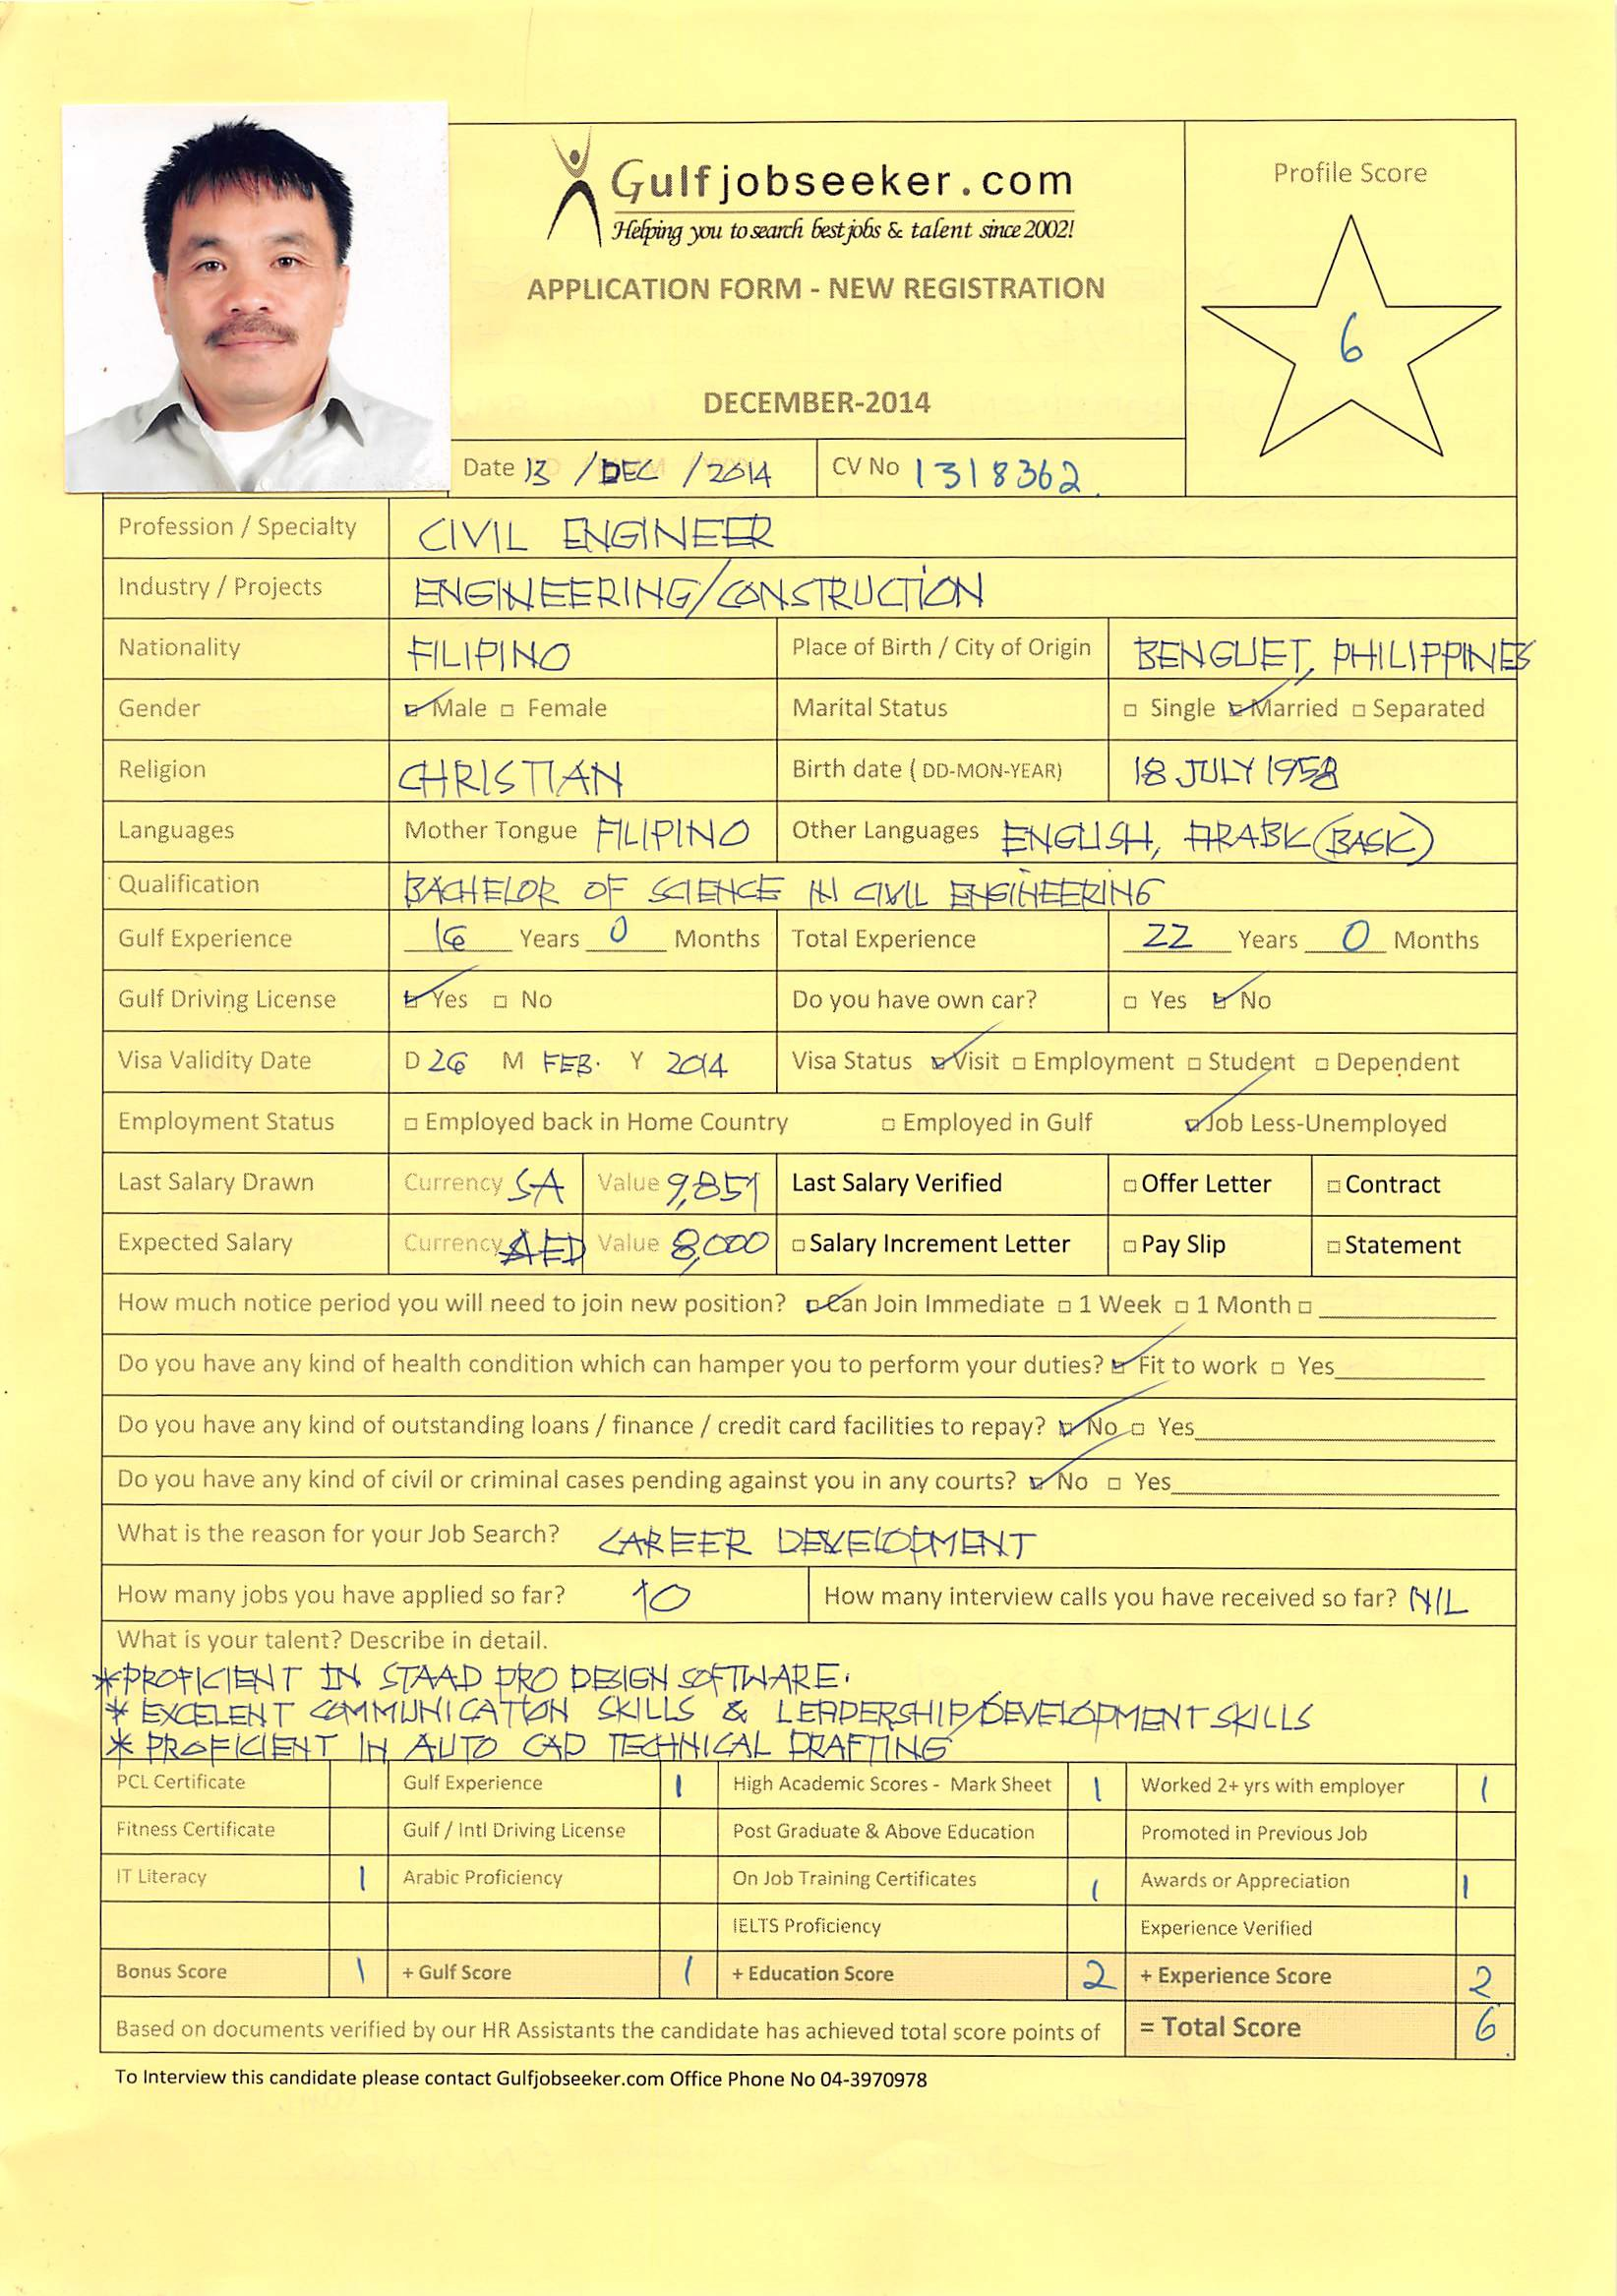 Gulfjobseeker.com
Helping you to search best jobs & talent since 2002!
APPLICATION FORM - NEW REGISTRATION
DECEMBER-2014
Profile Score
6
Date 13 /DEC /2014 CV No 1318362
Profession / Specialty CIVIL ENGINEER
Industry / Projects ENGINEERING/CONSTRUCTION
Nationality FILIPINO Place of Birth / City of Origin BENGUET, PHILIPPINES
Gender Male Female Marital Status Single Married Separated
Religion CHRISTIAN Birth date ( DD-MON-YEAR) 18 JULY 1958
Languages Mother Tongue FILIPINO Other Languages ENGLISH, ARABIC (BASIC)
Qualification BACHELOR OF SCIENCE IN CIVIL ENGINEERING
Gulf Experience 16 Years 0 Months Total Experience 22 Years 0 Months
Gulf Driving License Yes No Do you have own car? Yes No
Visa Validity Date D 26 M FEB. Y 2014 Visa Status Visit Employment Student Dependent
Employment Status Employed back in Home Country Employed in Gulf Job Less-Unemployed
Last Salary Drawn Currency SA Value 9,851 Last Salary Verified Offer Letter Contract
Expected Salary Currency AED Value 8,000 Salary Increment Letter Pay Slip Statement
How much notice period you will need to join new position? Can Join Immediate 1 Week 1 Month
Do you have any kind of health condition which can hamper you to perform your duties? Fit to work Yes
Do you have any kind of outstanding loans / finance / credit card facilities to repay? No Yes
Do you have any kind of civil or criminal cases pending against you in any courts? No Yes
What is the reason for your Job Search? CAREER DEVELOPMENT
How many jobs you have applied so far? 10 How many interview calls you have received so far? NIL
What is your talent? Describe in detail.
*PROFICIENT IN STAAD PRO DESIGN SOFTWARE.
* EXCELENT COMMUNICATION SKILLS & LEADERSHIP/DEVELOPMENT SKILLS
* PROFICIENT IN AUTO CAD TECHNICAL DRAFTING
PCL Certificate Gulf Experience 1 High Academic Scores - Mark Sheet 1 Worked 2+ yrs with employer 1
Fitness Certificate Gulf / Intl Driving License Post Graduate & Above Education Promoted in Previous Job
IT Literacy 1 Arabic Proficiency On Job Training Certificates 1 Awards or Appreciation 1
IELTS Proficiency Experience Verified
Bonus Score 1 + Gulf Score 1 + Education Score 2 + Experience Score 2
Based on documents verified by our HR Assistants the candidate has achieved total score points of = Total Score 6
To Interview this candidate please contact Gulfjobseeker.com Office Phone No 04-3970978